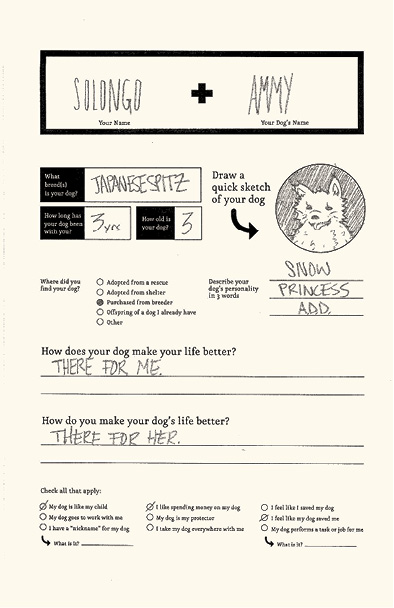 SOLONGO + AMMY
Your Name Your Dog's Name
What breed(s) is your dog? JAPANESE SPITZ
How long has your dog been with you? 3 yrs How old is your dog? 3
Draw a
quick sketch
of your dog
Where did you
find your dog?
Adopted from a rescue
Adopted from shelter
Purchased from breeder
Offspring of a dog I already have
Other
Describe your
dog's personality
in 3 words
SNOW
PRINCESS
ADD.
How does your dog make your life better?
THERE FOR ME.
How do you make your dog's life better?
THERE FOR HER.
Check all that apply:
My dog is like my child
My dog goes to work with me
I have a "nickname" for my dog
What is it?
I like spending money on my dog
My dog is my protector
I take my dog everywhere with me
I feel like I saved my dog
I feel like my dog saved me
My dog performs a task or job for me
What is it?